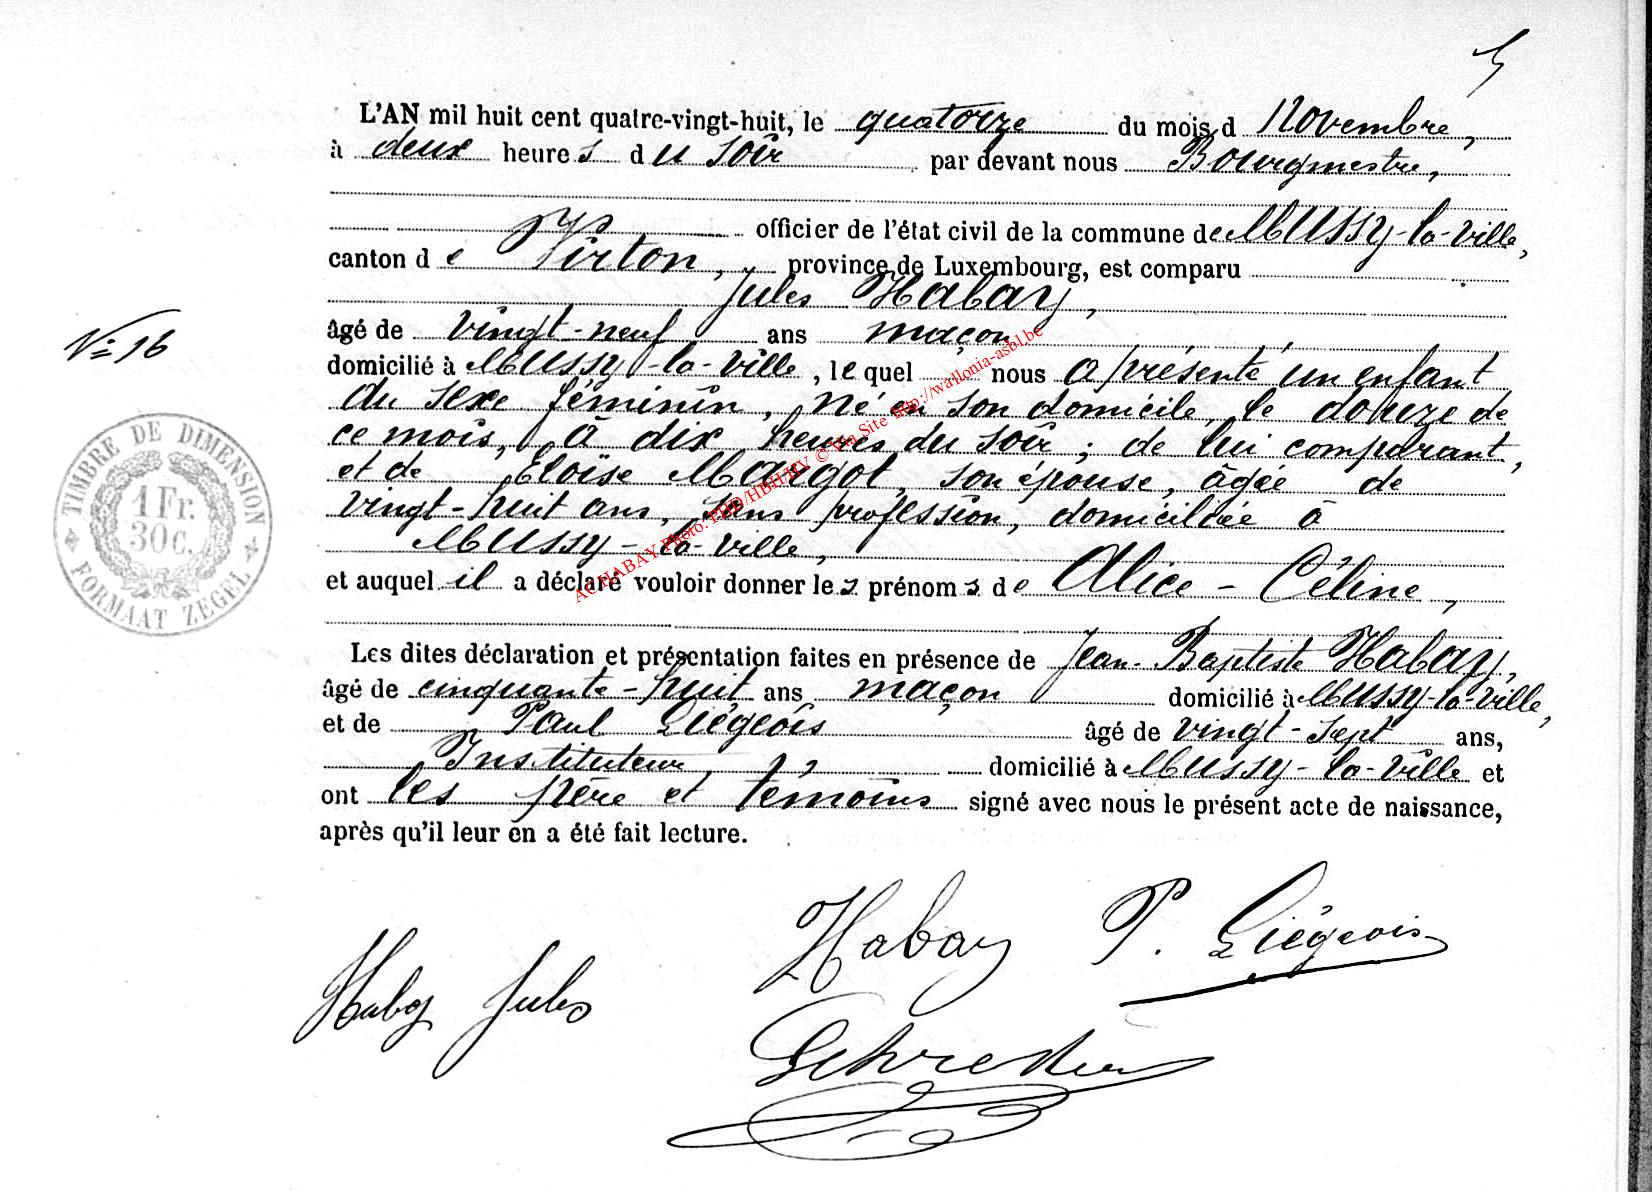 5
L'AN mil huit cent quatre-vingt-huit, le quatorze du mois d Novembre,
à deux heures du soir par devant nous Bourgmestre,
officier de l'état civil de la commune de Mussy-la-Ville,
canton de Virton, province de Luxembourg, est comparu
Jules Habay,
N° 16
âgé de vingt-neuf ans maçon
domicilié à Mussy-la-Ville, lequel nous a présenté un enfant
du sexe féminin, né en son domicile, le douze de
ce mois, à dix heures du soir ; de lui comparant,
et de Eloïse Margot, son épouse, âgée de
vingt-huit ans, sans profession, domiciliée à
Mussy-la-Ville,
et auquel il a déclaré vouloir donner les prénoms de Alice-Céline,
Les dites déclaration et présentation faites en présence de Jean-Baptiste Habay,
âgé de cinquante-huit ans maçon domicilié à Mussy-la-Ville,
et de Paul Liégeois âgé de vingt-sept ans,
Instituteur, domicilié à Mussy-la-Ville et
ont les père et témoins signé avec nous le présent acte de naissance,
après qu'il leur en a été fait lecture.
TIMBRE DE DIMENSION
1 Fr.
30 c.
FORMAAT ZEGEL
Ac HABAY Photo: PHD/HBH-HV © Via Site http://wallonia-asbl.be
Habay P. Liégeois
Habay Jules